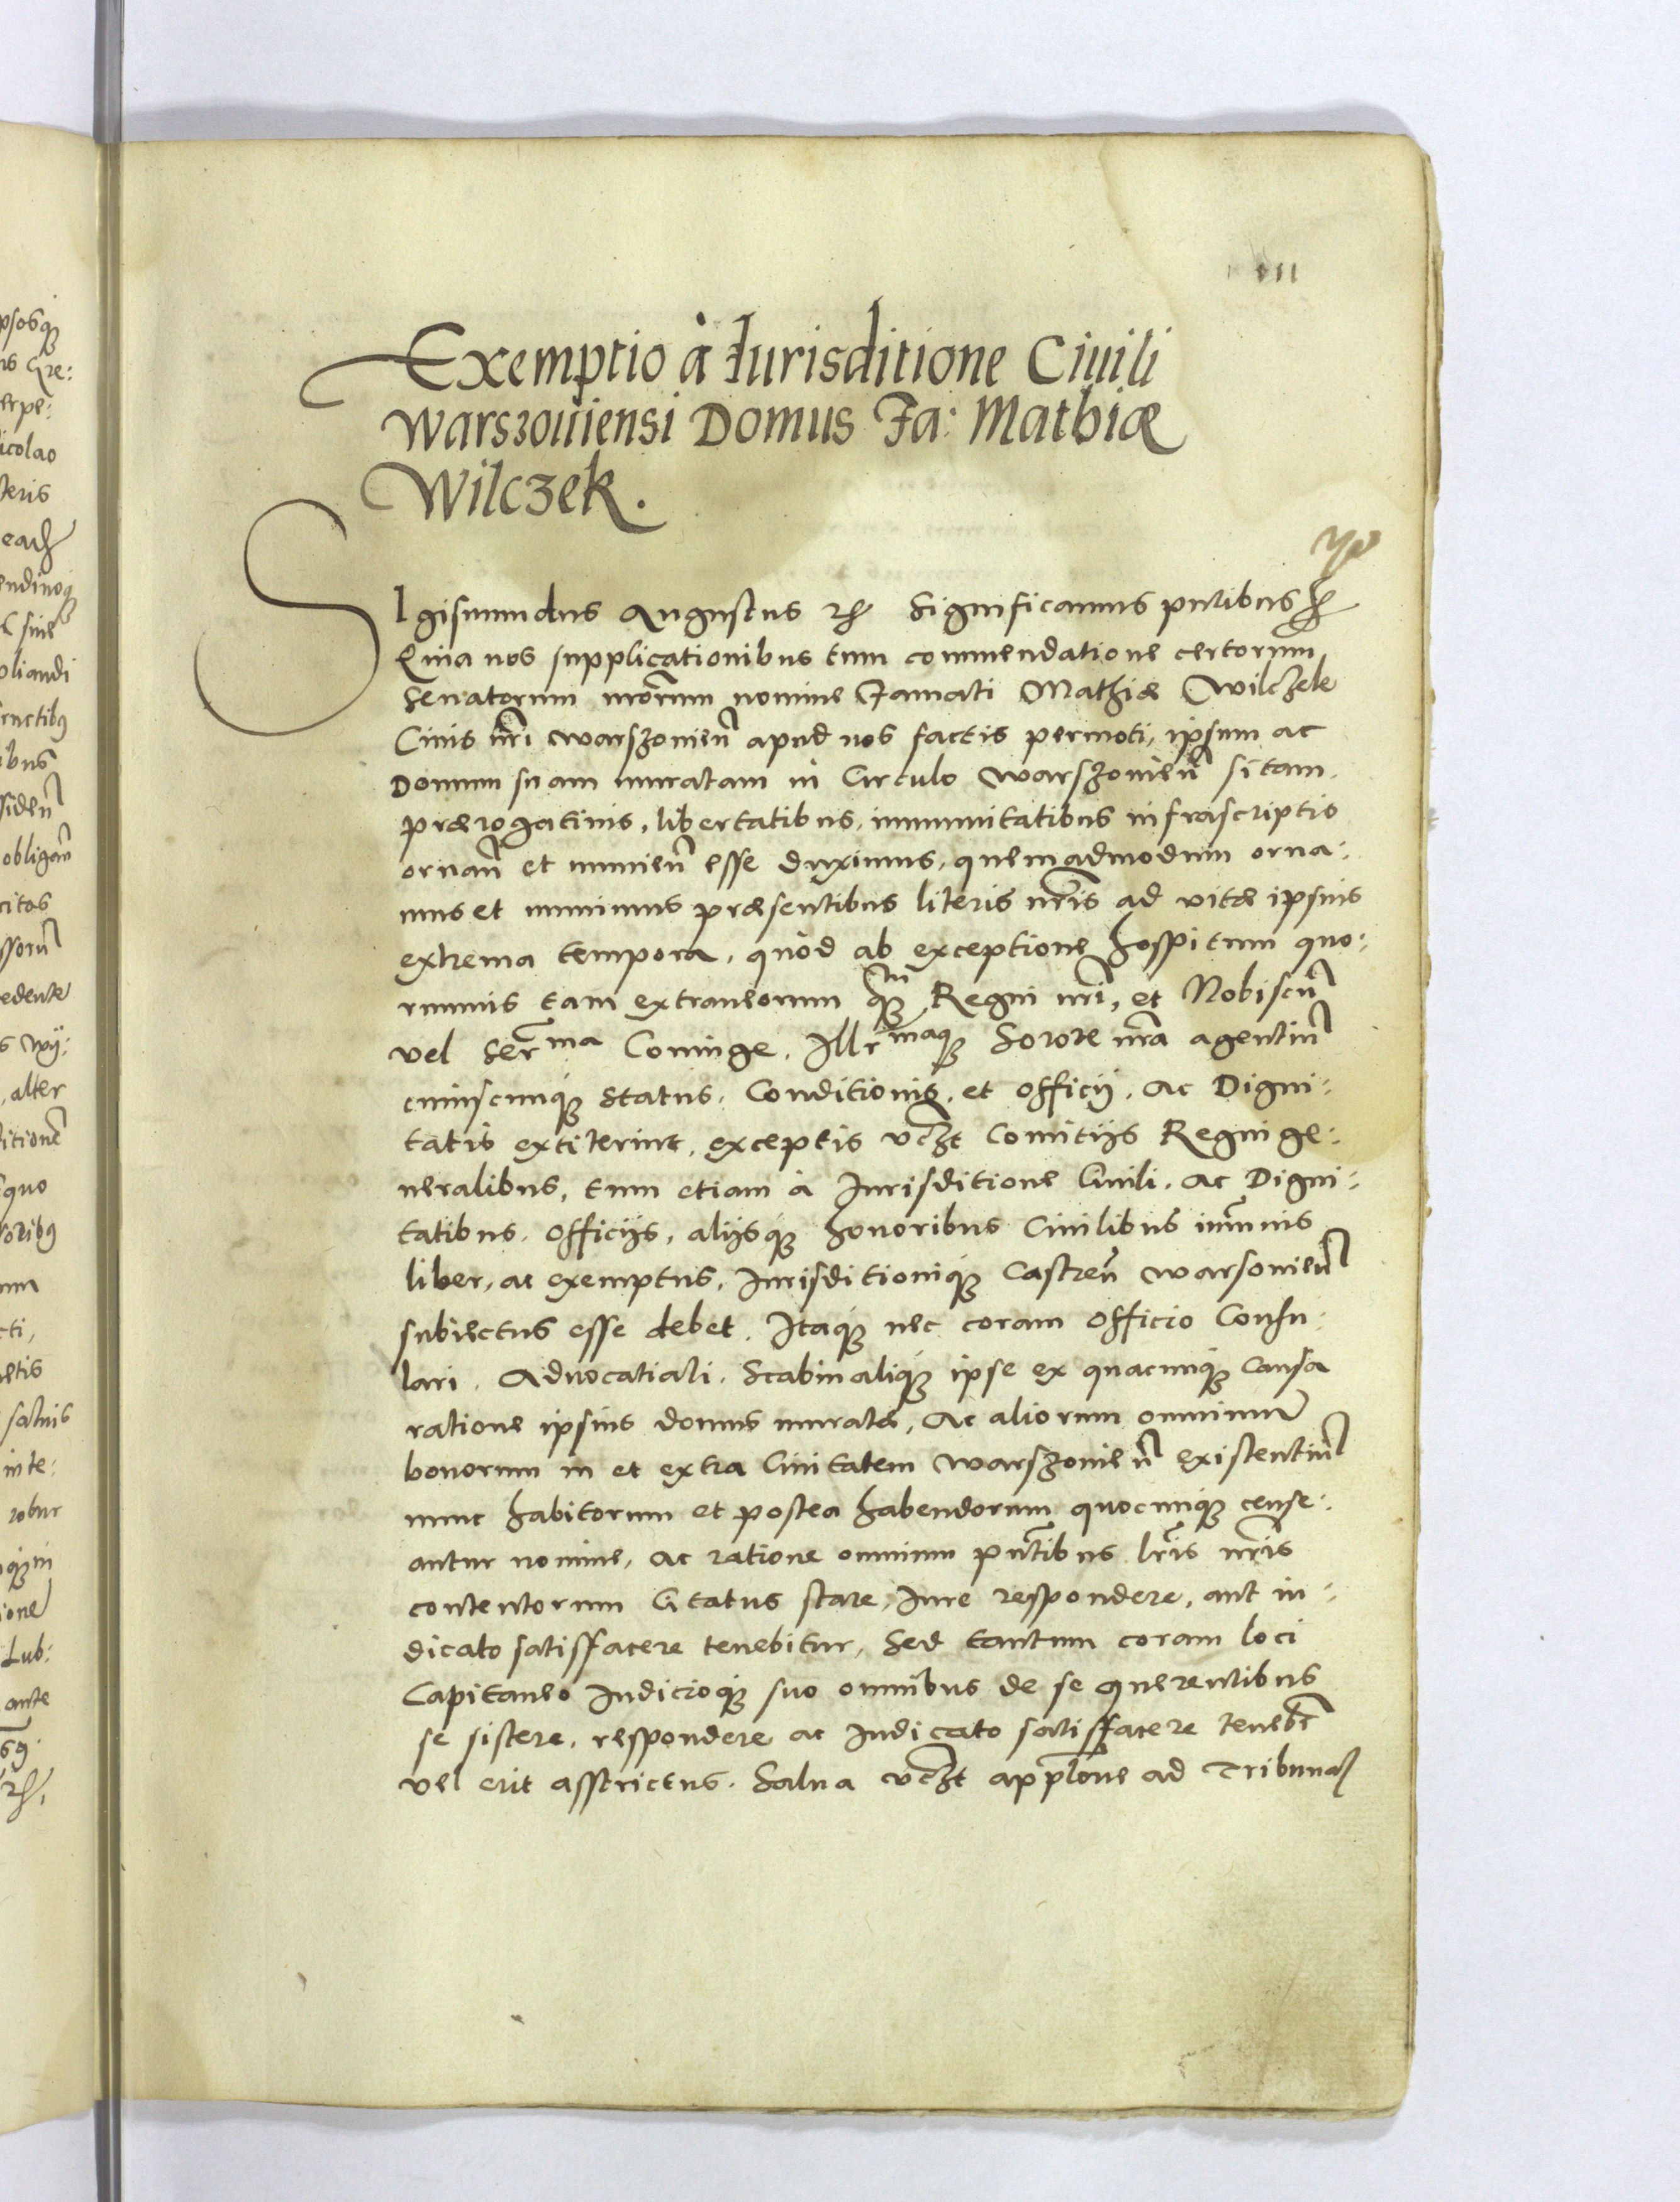 Exemptio à Iurisditione Ciuili
Warszouiensi Domus Fa: Mathiæ
Wilczek.
SIgismundus Augustus rc Significamus pntibus
Quia nos supplicationibus tum commendatione certorum
Senatorum nrorum nomine Famati Mathiæ Wilczek
Ciuis nri Warszouien apud nos factis permoti, ipsum ac
Domum suam muratam in Circulo Warszouien sitam
prærogatiuis, libertatibus, immunitatibus infrascriptis
ornan et munien esse duximus, quemadmodum orna:
mus et munimus præsentibus literis nris ad vitæ ipsius
extrema tempora, quòd ab exceptione hospitum quo:
rumuis tam extraneorum quàm Regni nri, et Nobiscu
vel Ser^ma Coniuge, Illr^maq Sorore nra agentiu
cuiuscunq status, Conditionis, et officij, ac Digni:
tatis extiterint, exceptis vczt Comitijs Regni ge:
neralibus, tum etiam à Jurisditione Ciuili, ac Digni:
tatibus, officijs, alijsq honoribus Ciuilibus immunis
liber, ac exemptus, Jurisditioniq Castren Warsouien
subiectus esse debet. Itaq nec coram officio Consu:
lari, Aduocatiali, Scabinaliq ipse ex quacunq causa
ratione ipsius domus muratæ, ac aliorum omnium
bonorum in et extra Ciuitatem Warszouien existentiu
nunc habitorum et postea habendorum quocunq cense:
antur nomine, ac ratione omnium pntibus lris nris
contentorum Citatus stare, Jure respondere, aut iu:
dicato satisfacere tenebitur, Sed tantum coram loci
Capitaneo Judicioq suo omnibus de se querentibus
se sistere, respondere ac Judicato satisfacere tenebr
vel erit asstrictus. Salua vczt applone ad Tribunal